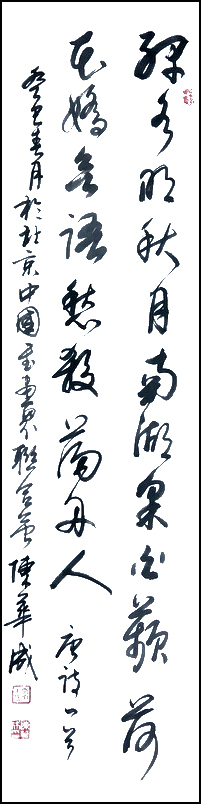 綠水明秋月南湖采白蘋荷
花嬌欲語愁殺蕩舟人 唐詩一首
癸巳春月於北京中國書畫界聯合會 陳華